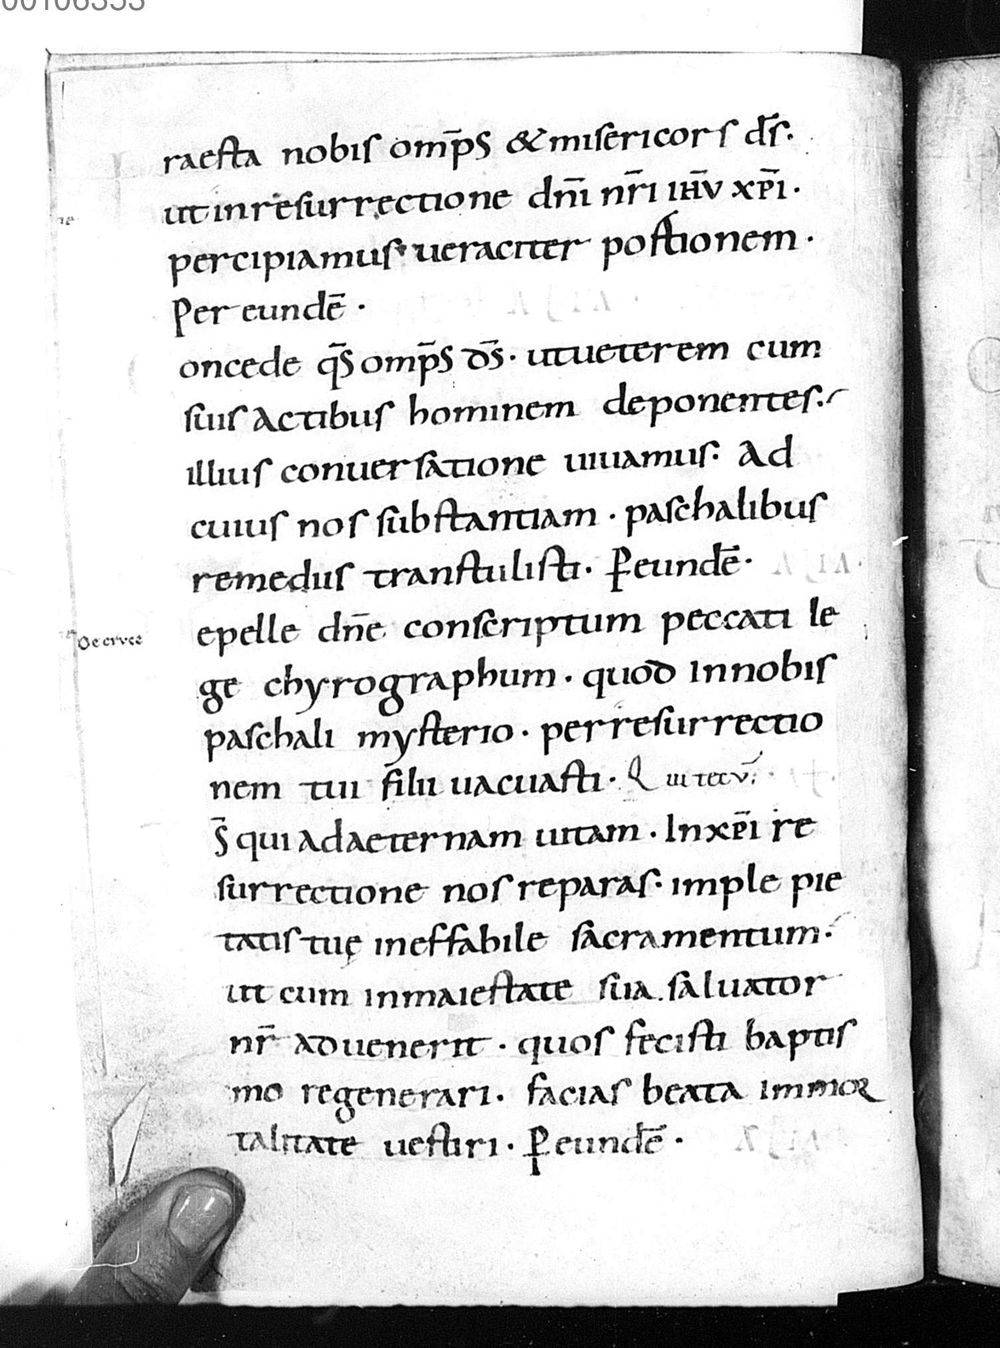 00106353
raesta nobis omp̄s & misericors d̄s.
ut in resurrectione dn̄i nr̄i ih̄u xp̄i.
percipiamus ueraciter portionem.
Per eundē.
oncede qs̄ omp̄s d̄s. ut ueterem cum
suis actibus hominem deponentes.
illius conuersatione uiuamus. Ad
cuius nos substantiam. paschalibus
remediis transtulisti. P̲ eundē.
De cruce
epelle dn̄e conscriptum peccati le
ge chyrographum. quod In nobis
paschali mysterio. per resurrectio
nem tui filii uacuasti. Q ui tecū.
S̄ qui ad aeternam uitam. In xp̄i re
surrectione nos reparas. imple pie
tatis tuę ineffabile sacramentum.
ut cum in maiestate sua saluator
nr̄ aduenerit. quos fecisti baptis
mo regenerari. facias beata immor
talitate uestiri. P̲ eundē.